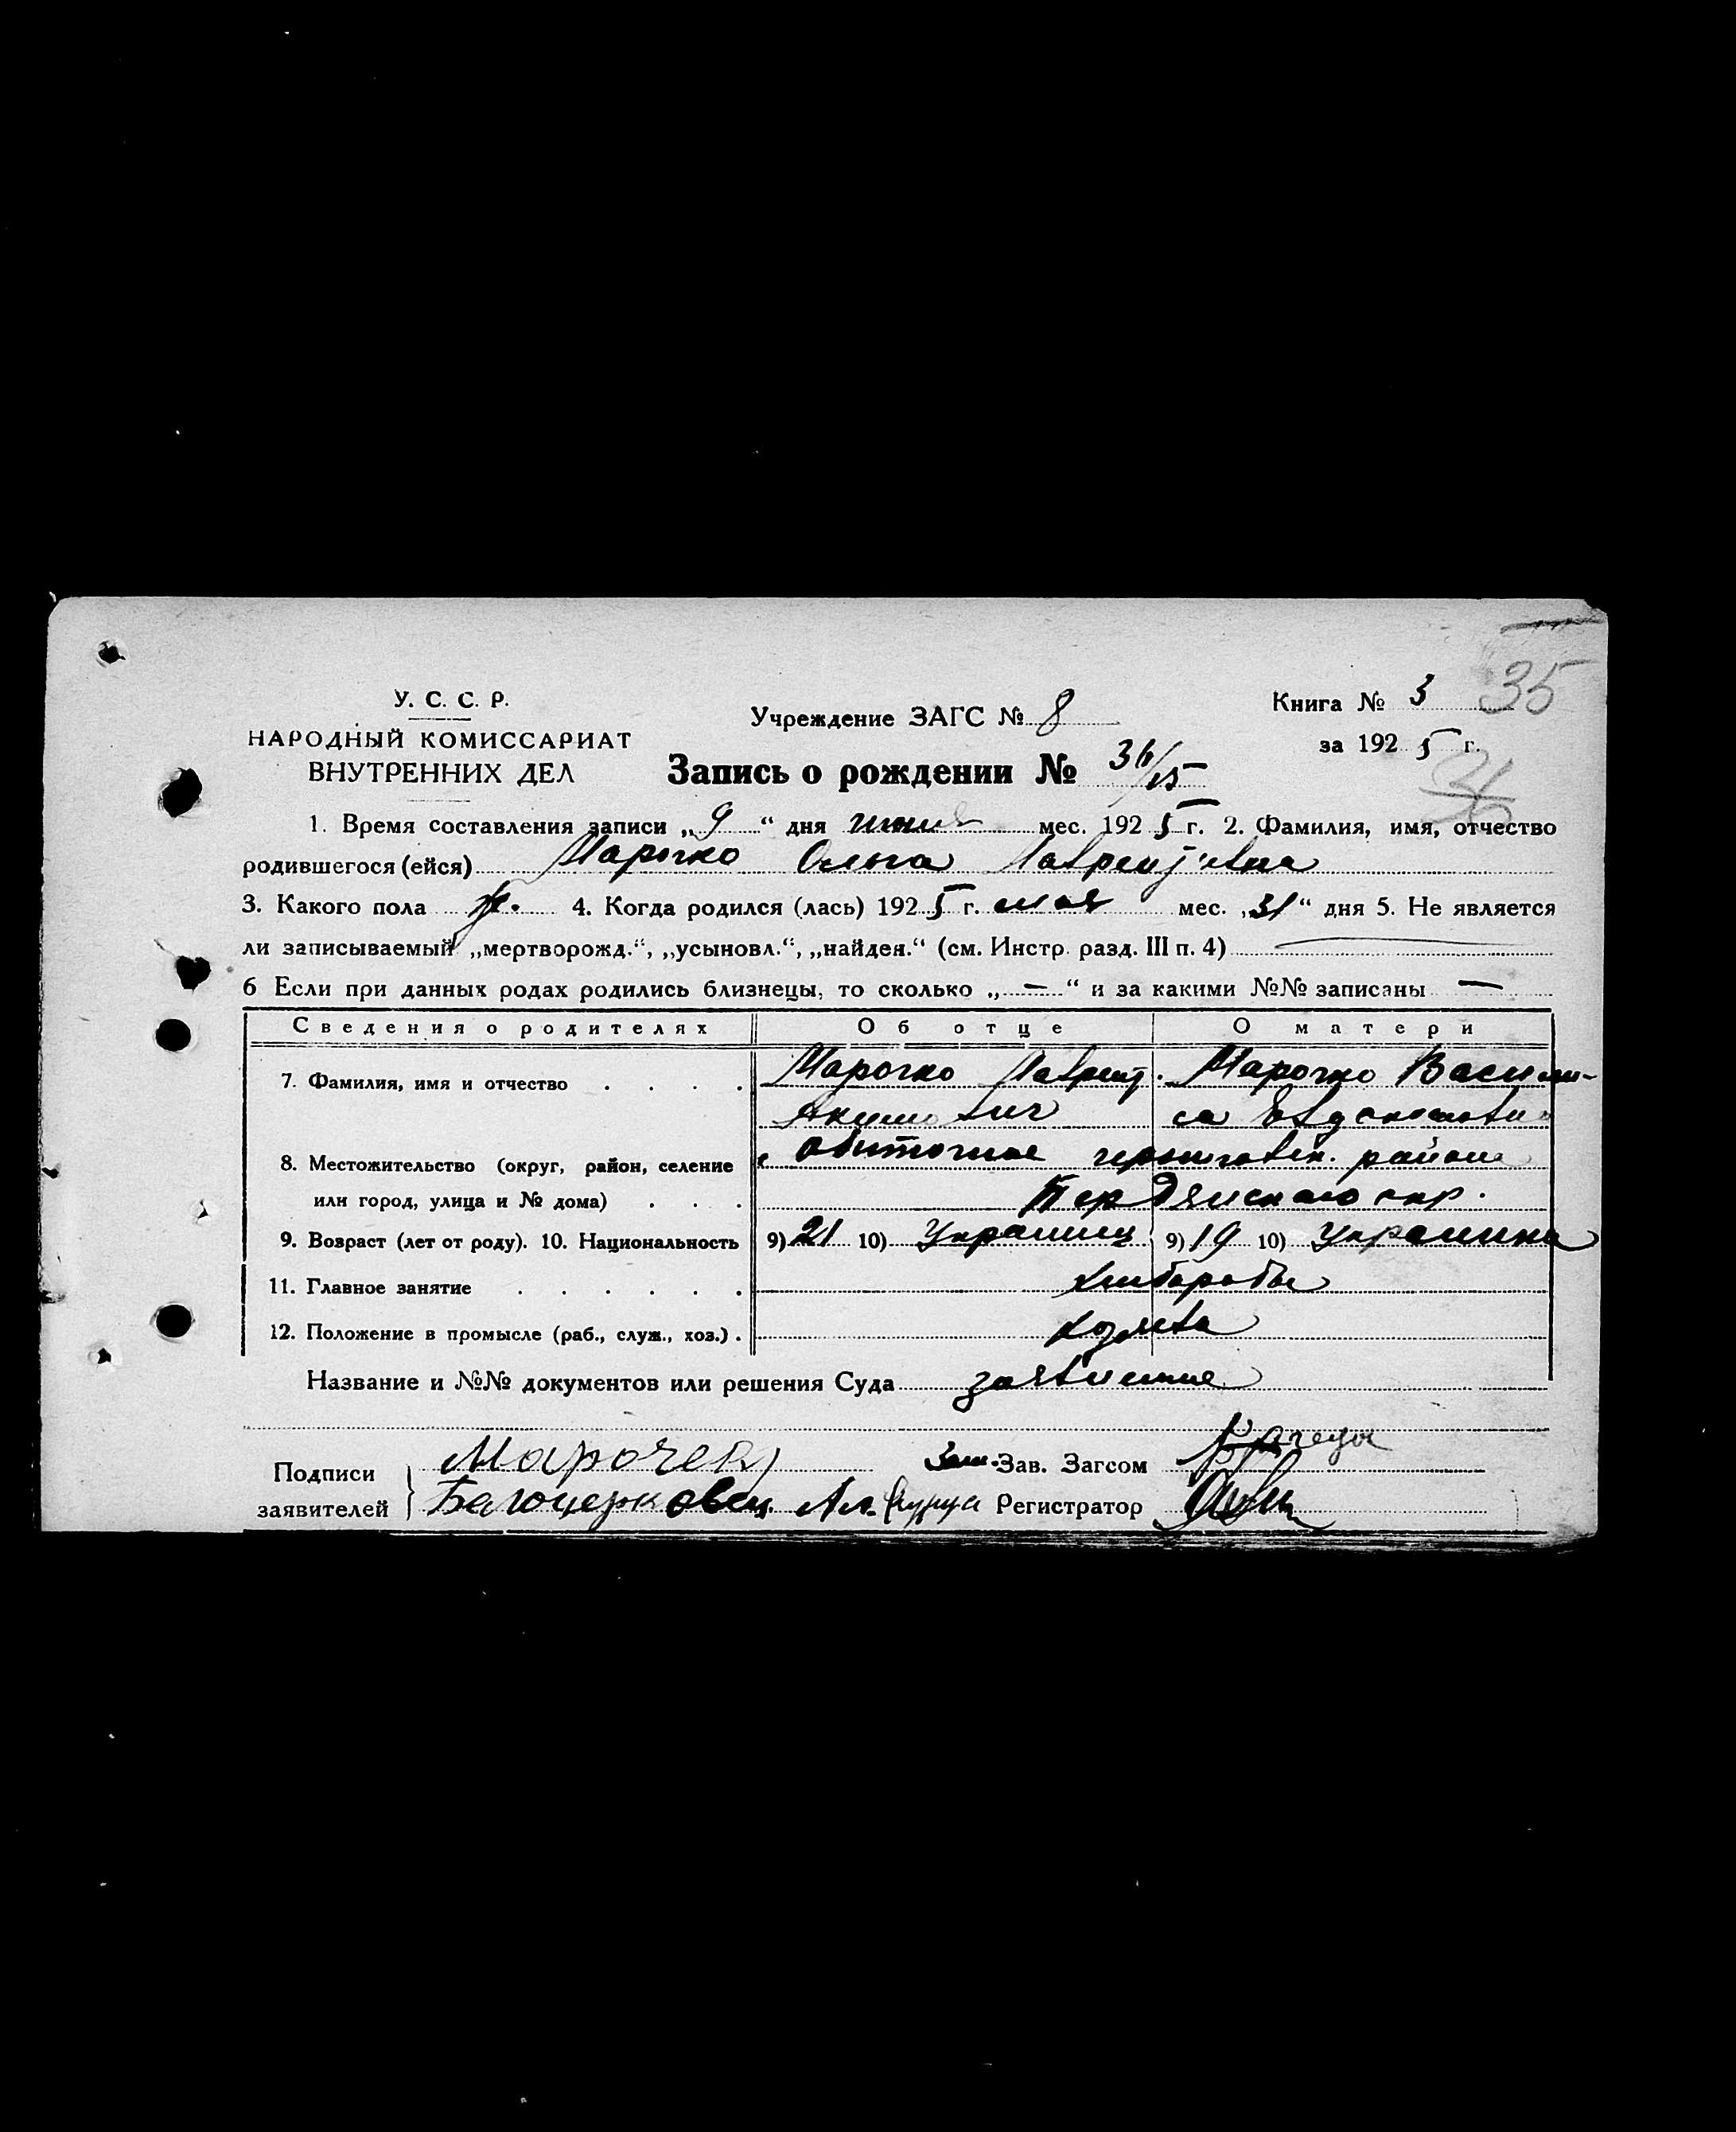 35
У. С. С. Р.
НАРОДНЫЙ КОМИССАРИАТ
ВНУТРЕННИХ ДЕЛ
Учреждение ЗАГС № 8
Запись о рождении № 36/15
Книга № 3
за 1925 г.
1. Время составления записи „9“ дня июня мес. 1925 г. 2. Фамилия, имя, отчество
родившегося (ейся) Марочко Ольга
3. Какого пола ж. 4. Когда родился (лась) 1925 г. мая мес. „31“ дня 5. Не является
ли записываемый „мертворожд.“, „усыновл.“, „найден.“ (см. Инстр. разд. III п. 4) —
6 Если при данных родах родились близнецы, то сколько „—“ и за какими №№ записаны —
Сведения о родителях Об отце О матери
7. Фамилия, имя и отчество . . . . Марочко Лаврент. Марочко Васили-
са
8. Местожительство (округ, район, селение с. Обиточное черниговск. района
или город, улица и № дома) . . . Бердянского окр.
9. Возраст (лет от роду). 10. Национальность 9) 21 10) Украинец 9) 19 10) Украинка
11. Главное занятие . . . . . . хлібороби
12. Положение в промысле (раб., служ., хоз.) . хозяева
Название и №№ документов или решения Суда заявление
Подписи Марочек Зам. Зав. Загсом
заявителей Белоцерковец Регистратор